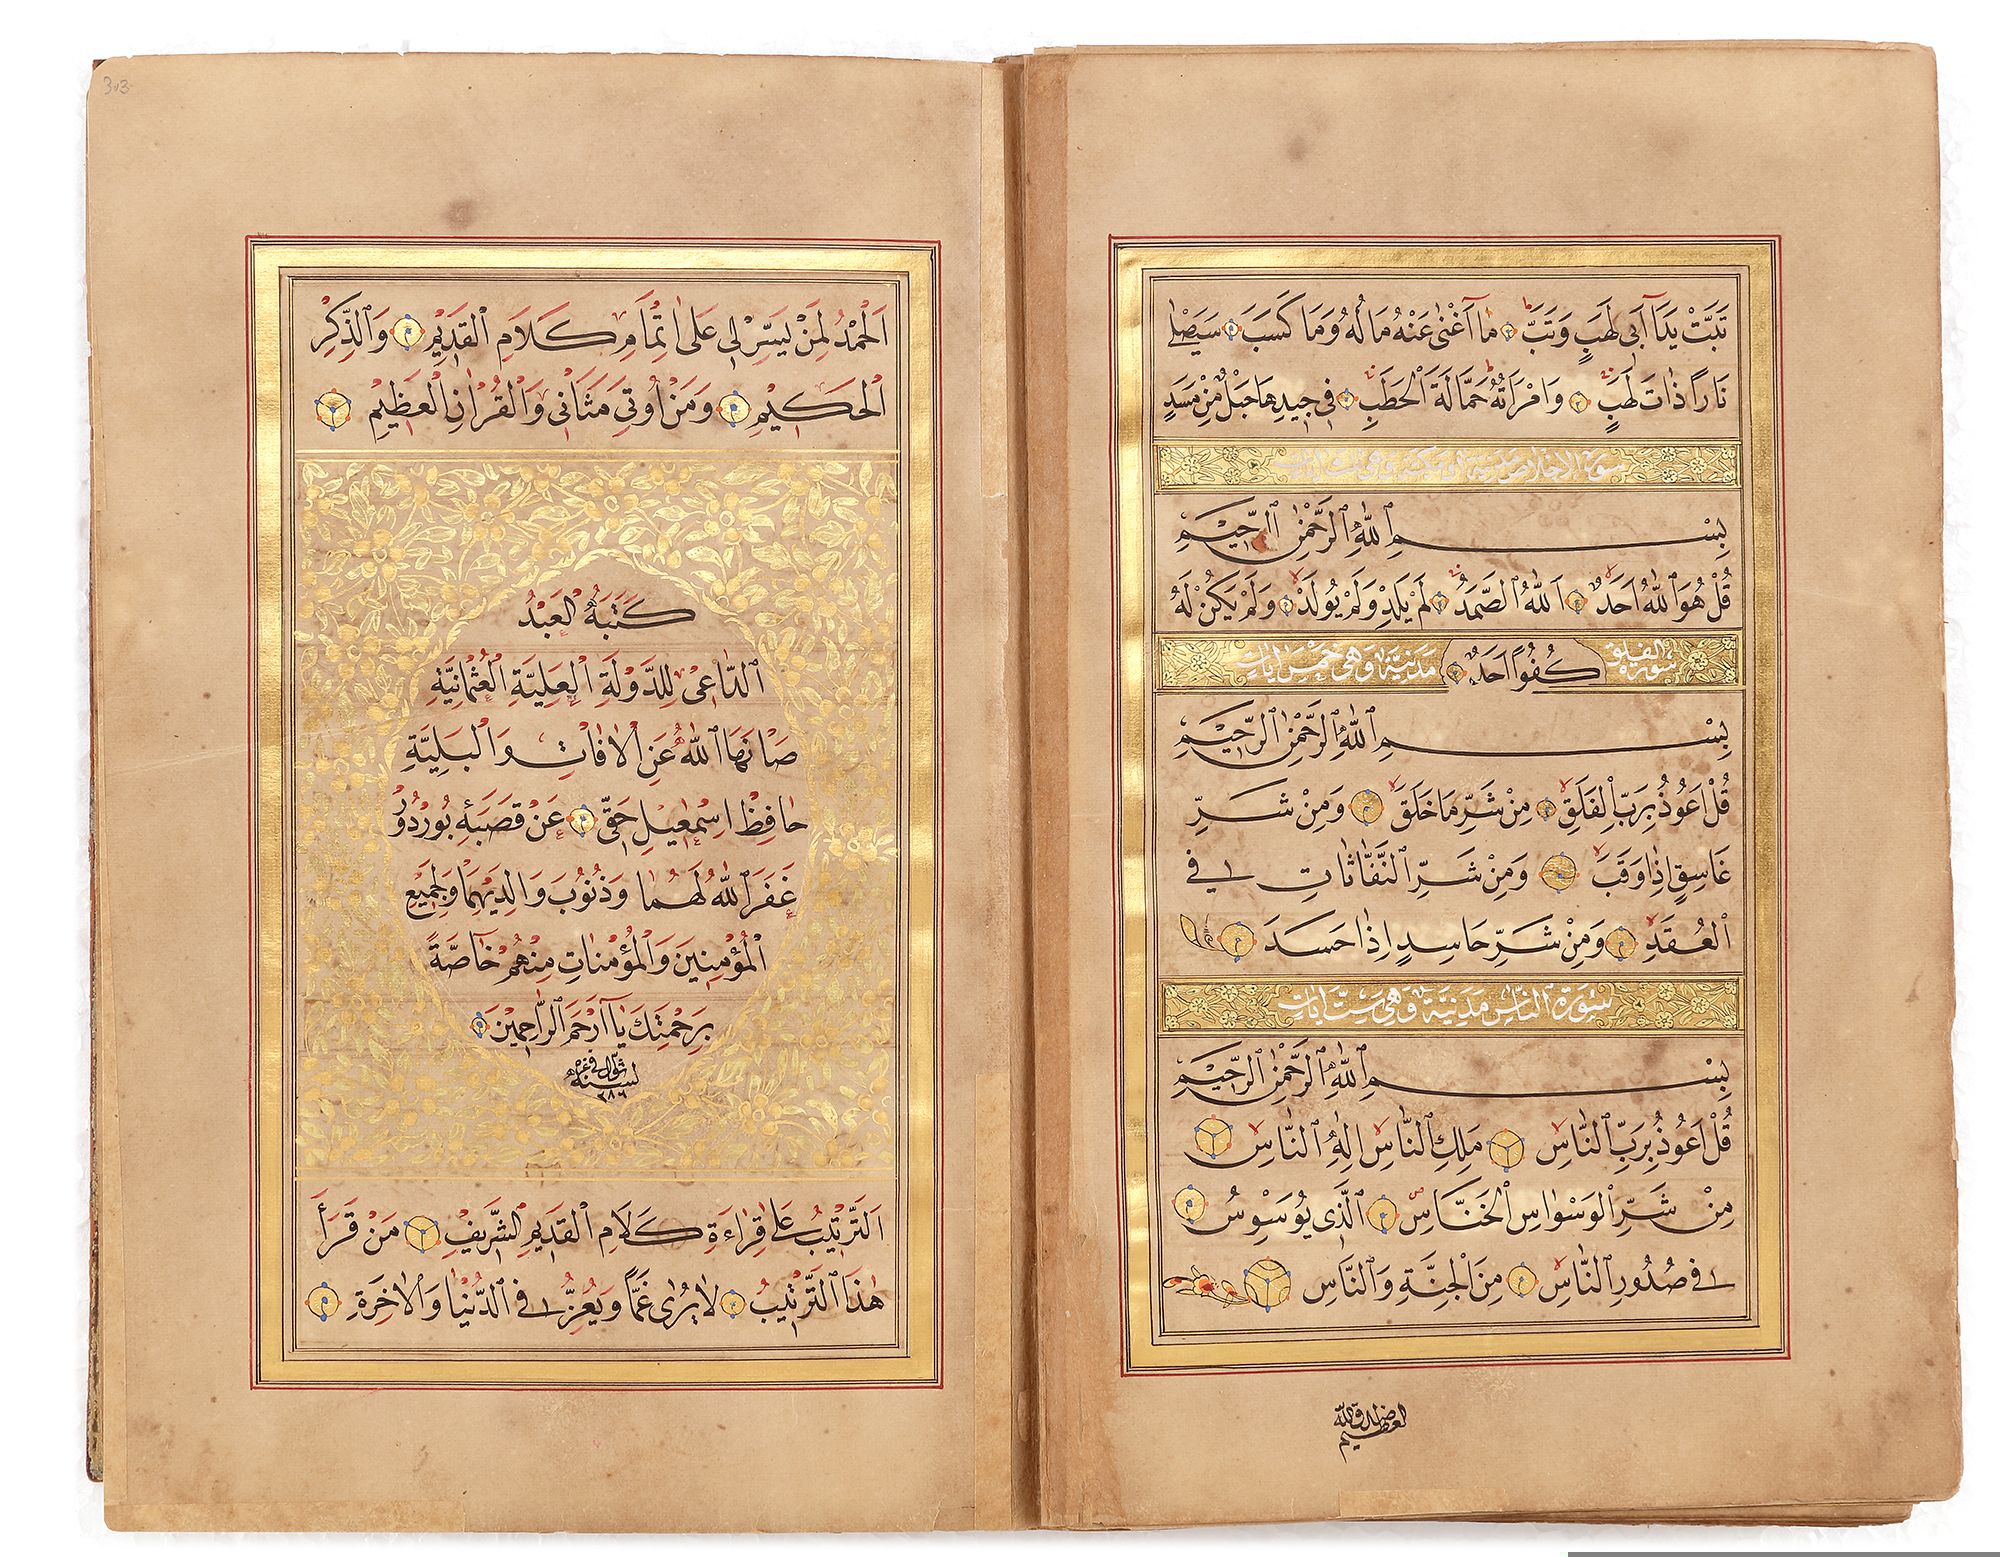 تَبَّتْ يَدَآ اَبى لَهَبٍ وَتَبَّ ۞ مَآ اَغْنٰى عَنْهُ مَالُهُ وَمَا كَسَبَ ۞ سَيَصْلٰى
نَارًا ذَاتَ لَهَبٍ ۞ وَامْرَاَتُهُ حَمَّالَةَ الْحَطَبِ ۞ فى جِيدِهَا حَبْلٌ مِنْ مَسَدٍ
سورة الاخلاص
بِسْمِ اللهِ الرَّحْمٰنِ الرَّحِيمِ
قُلْ هُوَ اللهُ اَحَدٌ ۞ اَللهُ الصَّمَدُ ۞ لَمْ يَلِدْ وَلَمْ يُولَدْ ۞ وَلَمْ يَكُنْ لَهُ
سورة الفلق كُفُوًا اَحَدٌ ۞ مَدَنِيَّة وَهى خمس ايات
بِسْمِ اللهِ الرَّحْمٰنِ الرَّحِيمِ
قُلْ اَعُوذُ بِرَبِّ الْفَلَقِ ۞ مِنْ شَرِّ مَا خَلَقَ ۞ وَمِنْ شَرِّ
غَاسِقٍ اِذَا وَقَبَ ۞ وَمِنْ شَرِّ النَّفَّاثَاتِ فِى
الْعُقَدِ ۞ وَمِنْ شَرِّ حَاسِدٍ اِذَا حَسَدَ ۞
سورة الناس مدنية وهى ست ايات
بِسْمِ اللهِ الرَّحْمٰنِ الرَّحِيمِ
قُلْ اَعُوذُ بِرَبِّ النَّاسِ ۞ مَلِكِ النَّاسِ اِلٰهِ النَّاسِ ۞
مِنْ شَرِّ الْوَسْوَاسِ الْخَنَّاسِ ۞ الَّذِى يُوَسْوِسُ ۞
فى صُدُورِ النَّاسِ ۞ مِنَ الْجِنَّةِ وَالنَّاسِ ۞
صدق الله
العظيم
303
اَلْحَمْدُ لِمَنْ يَسَّرَ لى عَلٰى اِتْمَامِ كَلَامِ الْقَدِيمِ ۞ وَالذِّكْرِ
الْحَكِيمِ ۞ وَمَنْ اُوتِىَ مَثَانى وَالْقُرْاٰنِ الْعَظِيمِ ۞
كَتَبَهُ الْعَبْدُ
الدَّاعِى لِلدَّوْلَةِ الْعَلِيَّةِ الْعُثْمَانِيَّةِ
صَانَهَا اللهُ عَنِ الْاٰفَاتِ وَالْبَلِيَّةِ
حَافِظ اِسْمٰعِيل حَقّى ۞ عَنْ قَصَبَهِٔ بُورْدُورْ
غَفَرَ اللهُ لَهُمَا وَذُنُوبَ وَالِدَيْهِمَا وَلِجَمِيعِ
الْمُؤْمِنِينَ وَالْمُؤْمِنَاتِ مِنْهُمْ خَآصَّةً
بِرَحْمَتِكَ يَآ اَرْحَمَ الرَّاحِمِينَ ۞
فى غرة شوال
لسنه
اَلتَّرْتِيبُ عَلٰى قِرَاءَةِ كَلَامِ الْقَدِيمِ الشَّرِيفِ ۞ مَنْ قَرَأَ
هٰذَا التَّرْتِيبُ ۞ لَا يَرٰى غَمًّا وَيَعُزُّ فى الدُّنْيَا وَالْاٰخِرَةِ ۞